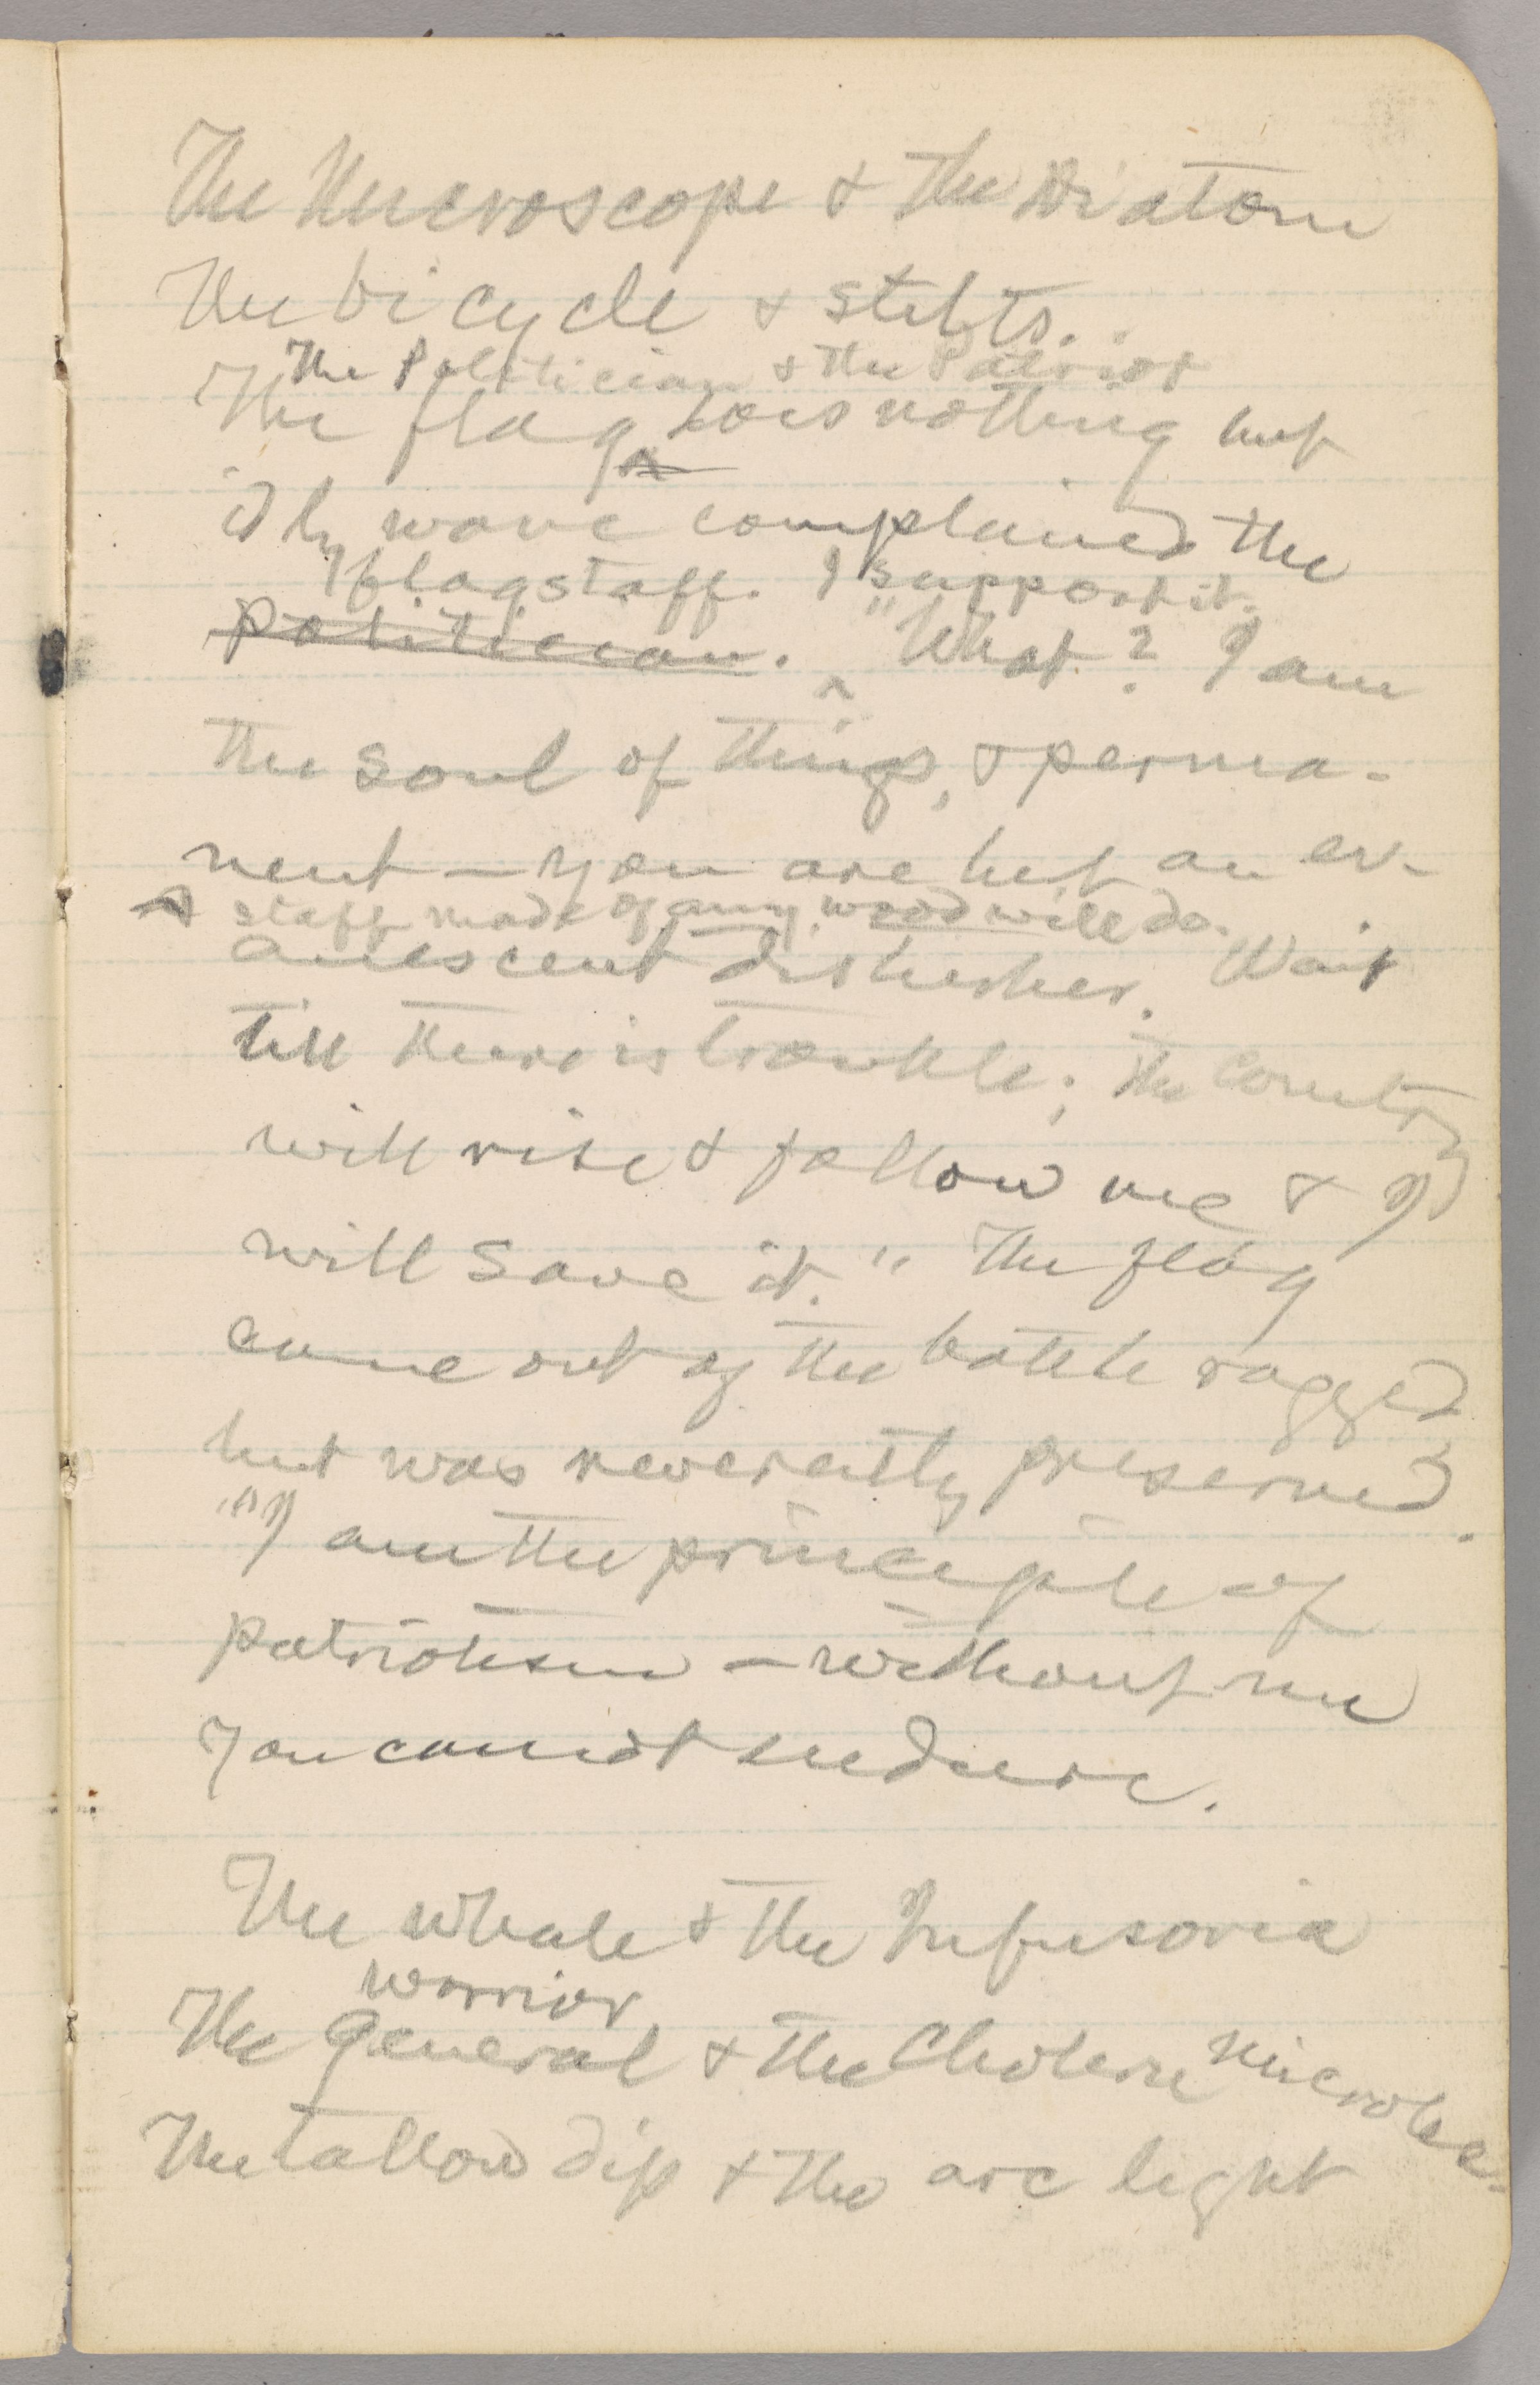 The Microscope & the Diatom
The bicycle & stilts.
The Politician & the Patriot
The flag does nothing but
idly wave complained the
flagstaff. I support it.
politician. "What? I am
the soul of things, & perma-
nent — you are but an ev-
A staff made of any wood will do.
anescent disturber. Wait
till there is trouble; the country
will rise & follow me & I
will save it." The flag
came out of the battle ragged
but was reverently preserved.
"I am the principle of
patriotism — without me
you cannot endure.
The Whale & the Infusoria
warrior
The General & the Cholera Microbe-
The tallow dip & the arc light